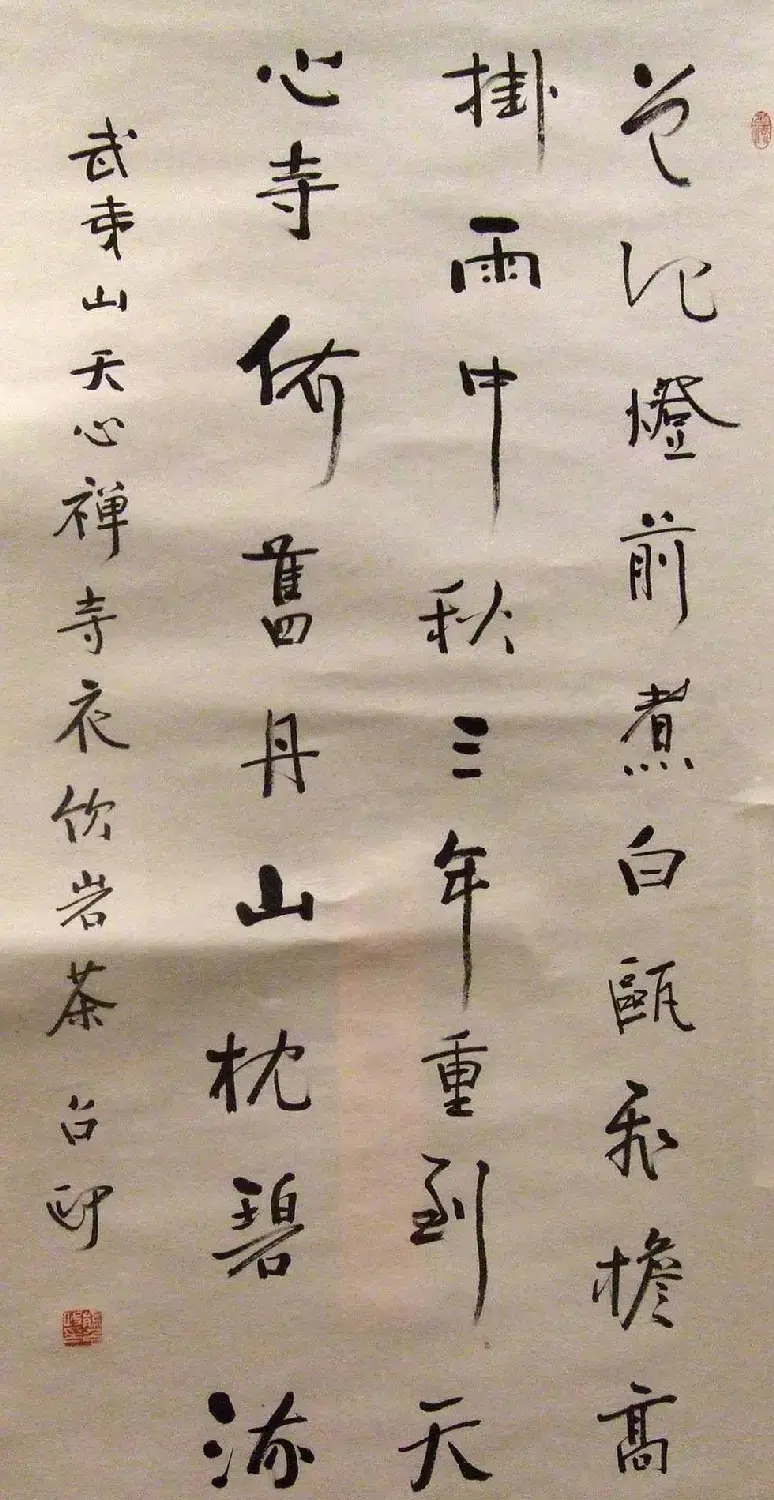 曾记燈前煮白甌飛檐高
掛雨中秋三年重到天
心寺依舊丹山枕碧流
武夷山天心禅寺夜饮岩茶